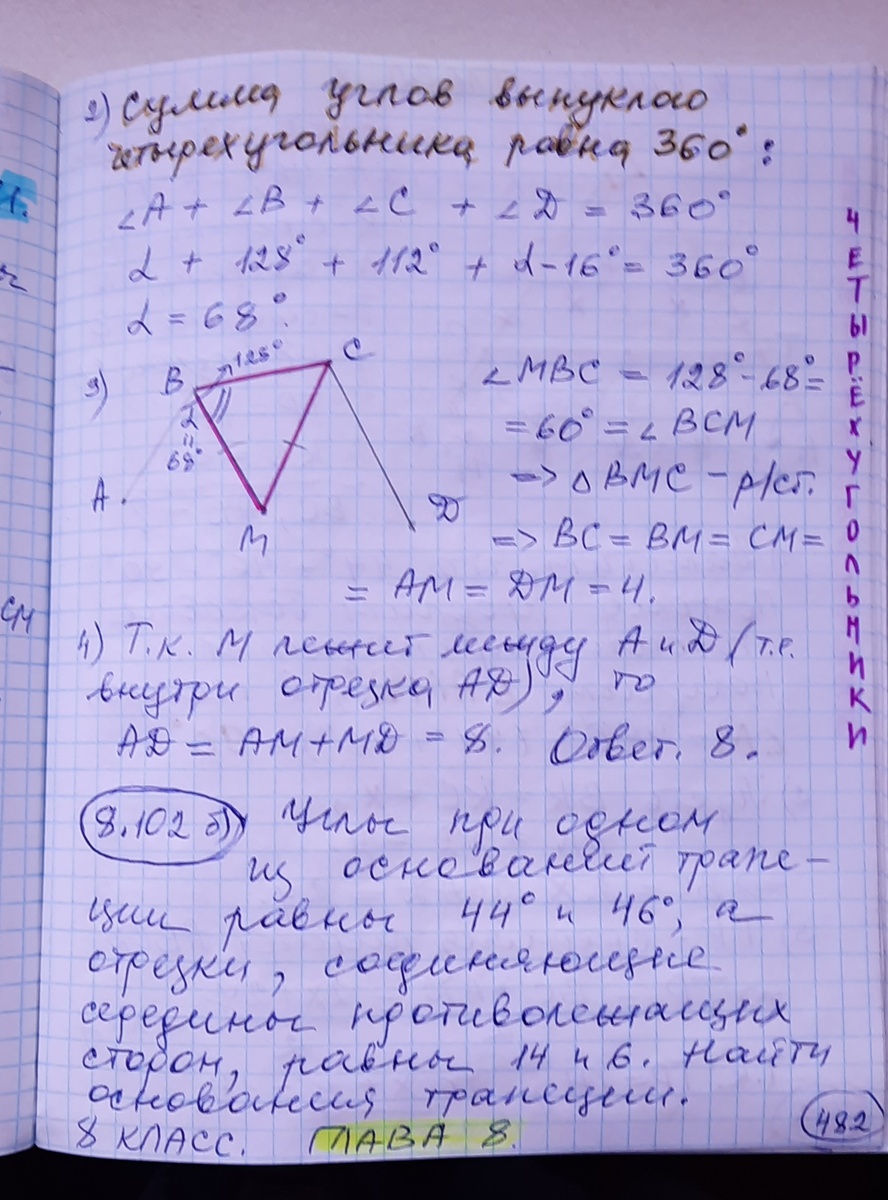 2) Сумма углов выпуклого
четырехугольника равна 360°:
∠A + ∠B + ∠C + ∠D = 360°
α + 128° + 112° + α-16° = 360°
α = 68°.
3)
B
128°
C
α
=
68°
A
M
D
∠MBC = 128°-68°=
= 60° = ∠BCM
=> △BMC - р/ст.
=> BC = BM = CM =
= AM = DM = 4.
4) Т.к. M лежит между A и D (т.е.
внутри отрезка AD), то
AD = AM+MD = 8. Ответ. 8.
8.102 б) Углы при одном
из оснований трапе-
ции равны 44° и 46°, а
отрезки, соединяющие
середины противолежащих
сторон, равны 14 и 6. Найти
основания трапеции.
8 КЛАСС. ГЛАВА 8.
482
ЧЕТЫРЁХУГОЛЬНИКИ
1.
см